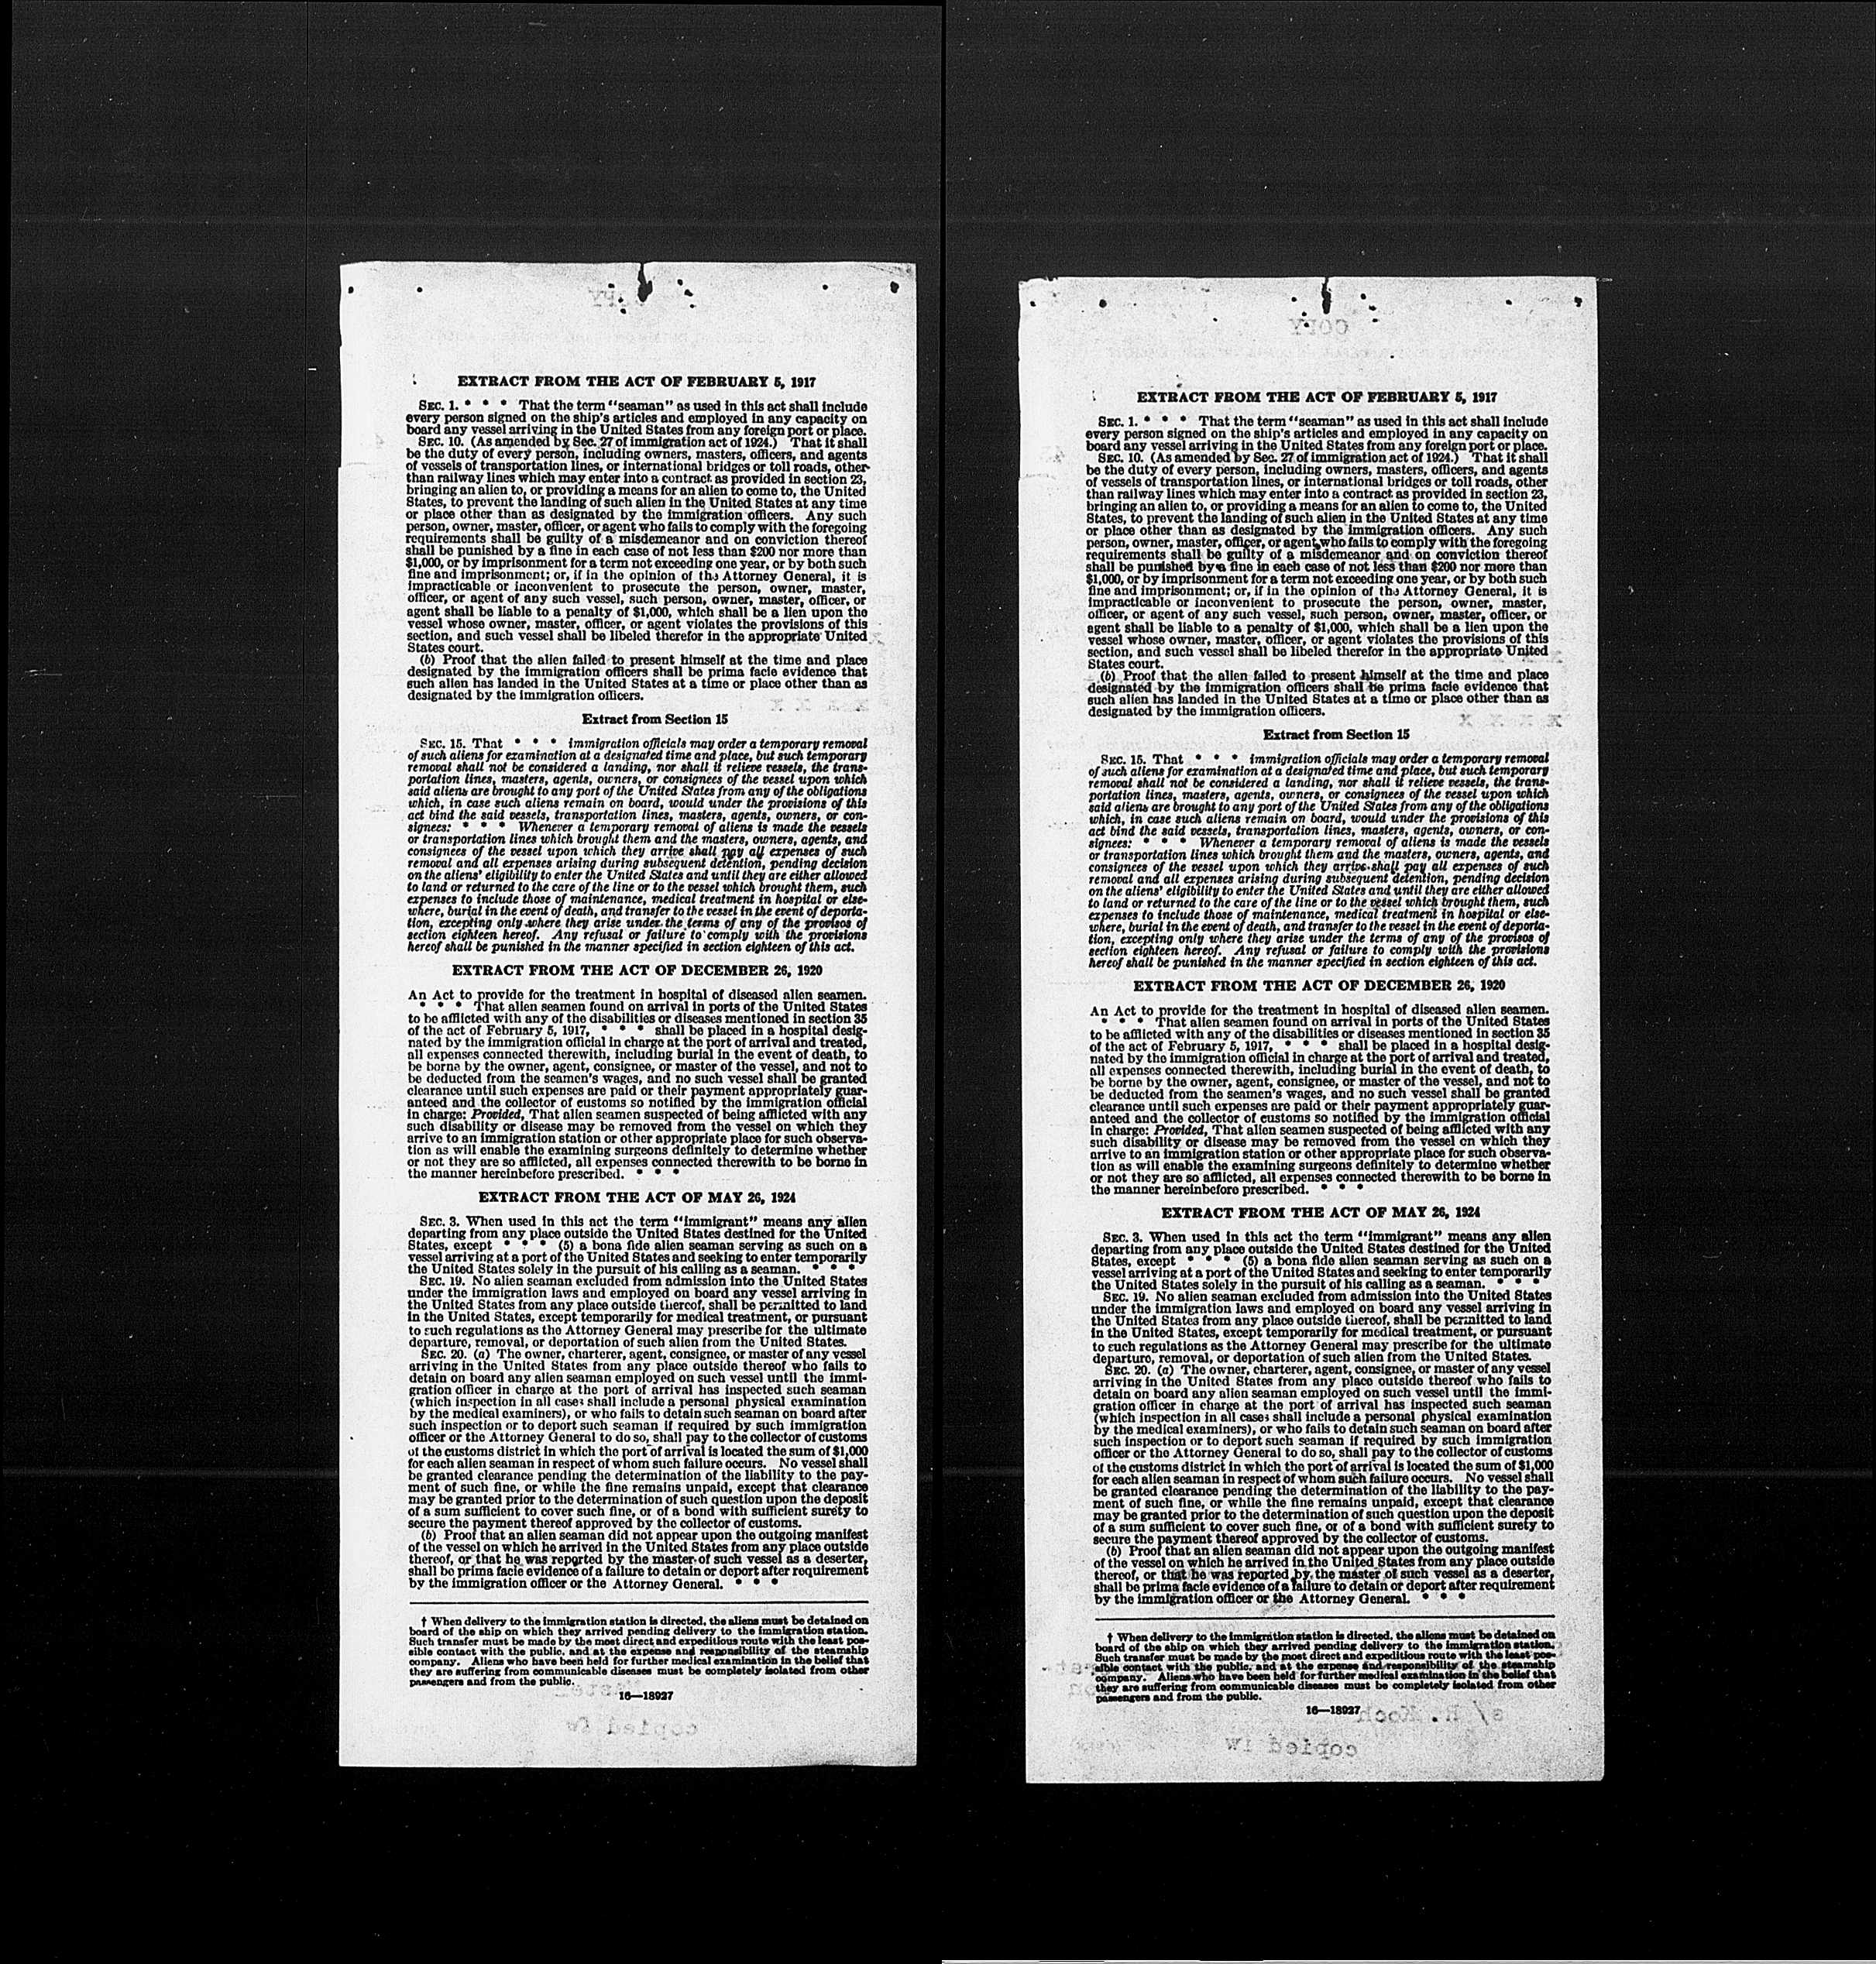 EXTRACT FROM THE ACT OF FEBRUARY 5, 1917
SEC. 1. * * * That the term "seaman" as used in this act shall include
every person signed on the ship's articles and employed in any capacity on
board any vessel arriving in the United States from any foreign port or place.
SEC. 10. (As amended by Sec. 27 of immigration act of 1924.) That it shall
be the duty of every person, including owners, masters, officers, and agents
of vessels of transportation lines, or international bridges or toll roads, other
than railway lines which may enter into a contract as provided in section 23,
bringing an alien to, or providing a means for an alien to come to, the United
States, to prevent the landing of such alien in the United States at any time
or place other than as designated by the immigration officers. Any such
person, owner, master, officer, or agent who fails to comply with the foregoing
requirements shall be guilty of a misdemeanor and on conviction thereof
shall be punished by a fine in each case of not less than $200 nor more than
$1,000, or by imprisonment for a term not exceeding one year, or by both such
fine and imprisonment; or, if in the opinion of the Attorney General, it is
impracticable or inconvenient to prosecute the person, owner, master,
officer, or agent of any such vessel, such person, owner, master, officer, or
agent shall be liable to a penalty of $1,000, which shall be a lien upon the
vessel whose owner, master, officer, or agent violates the provisions of this
section, and such vessel shall be libeled therefor in the appropriate United
States court.
(b) Proof that the alien failed to present himself at the time and place
designated by the immigration officers shall be prima facie evidence that
such alien has landed in the United States at a time or place other than as
designated by the immigration officers.
Extract from Section 15
SEC. 15. That * * * immigration officials may order a temporary removal
of such aliens for examination at a designated time and place, but such temporary
removal shall not be considered a landing, nor shall it relieve vessels, the trans-
portation lines, masters, agents, owners, or consignees of the vessel upon which
said aliens are brought to any port of the United States from any of the obligations
which, in case such aliens remain on board, would under the provisions of this
act bind the said vessels, transportation lines, masters, agents, owners, or con-
signees: * * * Whenever a temporary removal of aliens is made the vessels
or transportation lines which brought them and the masters, owners, agents, and
consignees of the vessel upon which they arrive shall pay all expenses of such
removal and all expenses arising during subsequent detention, pending decision
on the aliens' eligibility to enter the United States and until they are either allowed
to land or returned to the care of the line or to the vessel which brought them, such
expenses to include those of maintenance, medical treatment in hospital or else-
where, burial in the event of death, and transfer to the vessel in the event of deporta-
tion, excepting only where they arise under the terms of any of the provisos of
section eighteen hereof. Any refusal or failure to comply with the provisions
hereof shall be punished in the manner specified in section eighteen of this act.
EXTRACT FROM THE ACT OF DECEMBER 26, 1920
An Act to provide for the treatment in hospital of diseased alien seamen.
* * * That alien seamen found on arrival in ports of the United States
to be afflicted with any of the disabilities or diseases mentioned in section 35
of the act of February 5, 1917, * * * shall be placed in a hospital desig-
nated by the immigration official in charge at the port of arrival and treated,
all expenses connected therewith, including burial in the event of death, to
be borne by the owner, agent, consignee, or master of the vessel, and not to
be deducted from the seamen's wages, and no such vessel shall be granted
clearance until such expenses are paid or their payment appropriately guar-
anteed and the collector of customs so notified by the immigration official
in charge: Provided, That alien seamen suspected of being afflicted with any
such disability or disease may be removed from the vessel on which they
arrive to an immigration station or other appropriate place for such observa-
tion as will enable the examining surgeons definitely to determine whether
or not they are so afflicted, all expenses connected therewith to be borne in
the manner hereinbefore prescribed. * * *
EXTRACT FROM THE ACT OF MAY 26, 1924
SEC. 3. When used in this act the term "immigrant" means any alien
departing from any place outside the United States destined for the United
States, except * * * (5) a bona fide alien seaman serving as such on a
vessel arriving at a port of the United States and seeking to enter temporarily
the United States solely in the pursuit of his calling as a seaman. * * *
SEC. 19. No alien seaman excluded from admission into the United States
under the immigration laws and employed on board any vessel arriving in
the United States from any place outside thereof, shall be permitted to land
in the United States, except temporarily for medical treatment, or pursuant
to such regulations as the Attorney General may prescribe for the ultimate
departure, removal, or deportation of such alien from the United States.
SEC. 20. (a) The owner, charterer, agent, consignee, or master of any vessel
arriving in the United States from any place outside thereof who fails to
detain on board any alien seaman employed on such vessel until the immi-
gration officer in charge at the port of arrival has inspected such seaman
(which inspection in all cases shall include a personal physical examination
by the medical examiners), or who fails to detain such seaman on board after
such inspection or to deport such seaman if required by such immigration
officer or the Attorney General to do so, shall pay to the collector of customs
of the customs district in which the port of arrival is located the sum of $1,000
for each alien seaman in respect of whom such failure occurs. No vessel shall
be granted clearance pending the determination of the liability to the pay-
ment of such fine, or while the fine remains unpaid, except that clearance
may be granted prior to the determination of such question upon the deposit
of a sum sufficient to cover such fine, or of a bond with sufficient surety to
secure the payment thereof approved by the collector of customs.
(b) Proof that an alien seaman did not appear upon the outgoing manifest
of the vessel on which he arrived in the United States from any place outside
thereof, or that he was reported by the master of such vessel as a deserter,
shall be prima facie evidence of a failure to detain or deport after requirement
by the immigration officer or the Attorney General. * * *
† When delivery to the immigration station is directed, the aliens must be detained on
board of the ship on which they arrived pending delivery to the immigration station.
Such transfer must be made by the most direct and expeditious route with the least pos-
sible contact with the public, and at the expense and responsibility of the steamship
company. Aliens who have been held for further medical examination in the belief that
they are suffering from communicable diseases must be completely isolated from other
passengers and from the public.
16—18927
copied fw
COPY
EXTRACT FROM THE ACT OF FEBRUARY 5, 1917
SEC. 1. * * * That the term "seaman" as used in this act shall include
every person signed on the ship's articles and employed in any capacity on
board any vessel arriving in the United States from any foreign port or place.
SEC. 10. (As amended by Sec. 27 of immigration act of 1924.) That it shall
be the duty of every person, including owners, masters, officers, and agents
of vessels of transportation lines, or international bridges or toll roads, other
than railway lines which may enter into a contract as provided in section 23,
bringing an alien to, or providing a means for an alien to come to, the United
States, to prevent the landing of such alien in the United States at any time
or place other than as designated by the immigration officers. Any such
person, owner, master, officer, or agent who fails to comply with the foregoing
requirements shall be guilty of a misdemeanor and on conviction thereof
shall be punished by a fine in each case of not less than $200 nor more than
$1,000, or by imprisonment for a term not exceeding one year, or by both such
fine and imprisonment; or, if in the opinion of the Attorney General, it is
impracticable or inconvenient to prosecute the person, owner, master,
officer, or agent of any such vessel, such person, owner, master, officer, or
agent shall be liable to a penalty of $1,000, which shall be a lien upon the
vessel whose owner, master, officer, or agent violates the provisions of this
section, and such vessel shall be libeled therefor in the appropriate United
States court.
(b) Proof that the alien failed to present himself at the time and place
designated by the immigration officers shall be prima facie evidence that
such alien has landed in the United States at a time or place other than as
designated by the immigration officers.
Extract from Section 15
SEC. 15. That * * * immigration officials may order a temporary removal
of such aliens for examination at a designated time and place, but such temporary
removal shall not be considered a landing, nor shall it relieve vessels, the trans-
portation lines, masters, agents, owners, or consignees of the vessel upon which
said aliens are brought to any port of the United States from any of the obligations
which, in case such aliens remain on board, would under the provisions of this
act bind the said vessels, transportation lines, masters, agents, owners, or con-
signees: * * * Whenever a temporary removal of aliens is made the vessels
or transportation lines which brought them and the masters, owners, agents, and
consignees of the vessel upon which they arrive shall pay all expenses of such
removal and all expenses arising during subsequent detention, pending decision
on the aliens' eligibility to enter the United States and until they are either allowed
to land or returned to the care of the line or to the vessel which brought them, such
expenses to include those of maintenance, medical treatment in hospital or else-
where, burial in the event of death, and transfer to the vessel in the event of deporta-
tion, excepting only where they arise under the terms of any of the provisos of
section eighteen hereof. Any refusal or failure to comply with the provisions
hereof shall be punished in the manner specified in section eighteen of this act.
EXTRACT FROM THE ACT OF DECEMBER 26, 1920
An Act to provide for the treatment in hospital of diseased alien seamen.
* * * That alien seamen found on arrival in ports of the United States
to be afflicted with any of the disabilities or diseases mentioned in section 35
of the act of February 5, 1917, * * * shall be placed in a hospital desig-
nated by the immigration official in charge at the port of arrival and treated,
all expenses connected therewith, including burial in the event of death, to
be borne by the owner, agent, consignee, or master of the vessel, and not to
be deducted from the seamen's wages, and no such vessel shall be granted
clearance until such expenses are paid or their payment appropriately guar-
anteed and the collector of customs so notified by the immigration official
in charge: Provided, That alien seamen suspected of being afflicted with any
such disability or disease may be removed from the vessel on which they
arrive to an immigration station or other appropriate place for such observa-
tion as will enable the examining surgeons definitely to determine whether
or not they are so afflicted, all expenses connected therewith to be borne in
the manner hereinbefore prescribed. * * *
EXTRACT FROM THE ACT OF MAY 26, 1924
SEC. 3. When used in this act the term "immigrant" means any alien
departing from any place outside the United States destined for the United
States, except * * * (5) a bona fide alien seaman serving as such on a
vessel arriving at a port of the United States and seeking to enter temporarily
the United States solely in the pursuit of his calling as a seaman. * * *
SEC. 19. No alien seaman excluded from admission into the United States
under the immigration laws and employed on board any vessel arriving in
the United States from any place outside thereof, shall be permitted to land
in the United States, except temporarily for medical treatment, or pursuant
to such regulations as the Attorney General may prescribe for the ultimate
departure, removal, or deportation of such alien from the United States.
SEC. 20. (a) The owner, charterer, agent, consignee, or master of any vessel
arriving in the United States from any place outside thereof who fails to
detain on board any alien seaman employed on such vessel until the immi-
gration officer in charge at the port of arrival has inspected such seaman
(which inspection in all cases shall include a personal physical examination
by the medical examiners), or who fails to detain such seaman on board after
such inspection or to deport such seaman if required by such immigration
officer or the Attorney General to do so, shall pay to the collector of customs
of the customs district in which the port of arrival is located the sum of $1,000
for each alien seaman in respect of whom such failure occurs. No vessel shall
be granted clearance pending the determination of the liability to the pay-
ment of such fine, or while the fine remains unpaid, except that clearance
may be granted prior to the determination of such question upon the deposit
of a sum sufficient to cover such fine, or of a bond with sufficient surety to
secure the payment thereof approved by the collector of customs.
(b) Proof that an alien seaman did not appear upon the outgoing manifest
of the vessel on which he arrived in the United States from any place outside
thereof, or that he was reported by the master of such vessel as a deserter,
shall be prima facie evidence of a failure to detain or deport after requirement
by the immigration officer or the Attorney General. * * *
† When delivery to the immigration station is directed, the aliens must be detained on
board of the ship on which they arrived pending delivery to the immigration station.
Such transfer must be made by the most direct and expeditious route with the least pos-
sible contact with the public, and at the expense and responsibility of the steamship
company. Aliens who have been held for further medical examination in the belief that
they are suffering from communicable diseases must be completely isolated from other
passengers and from the public.
16—18927
s/ R. Koch
copied